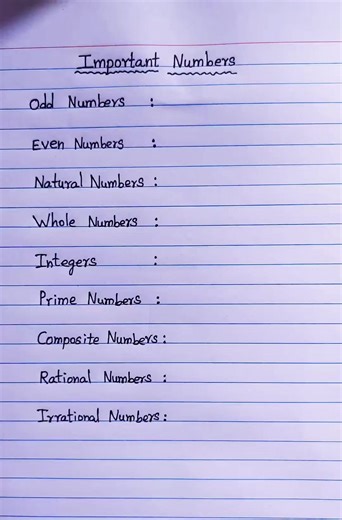 Important Numbers
Odd Numbers :
Even Numbers :
Natural Numbers :
Whole Numbers :
Integers :
Prime Numbers :
Composite Numbers :
Rational Numbers :
Irrational Numbers :